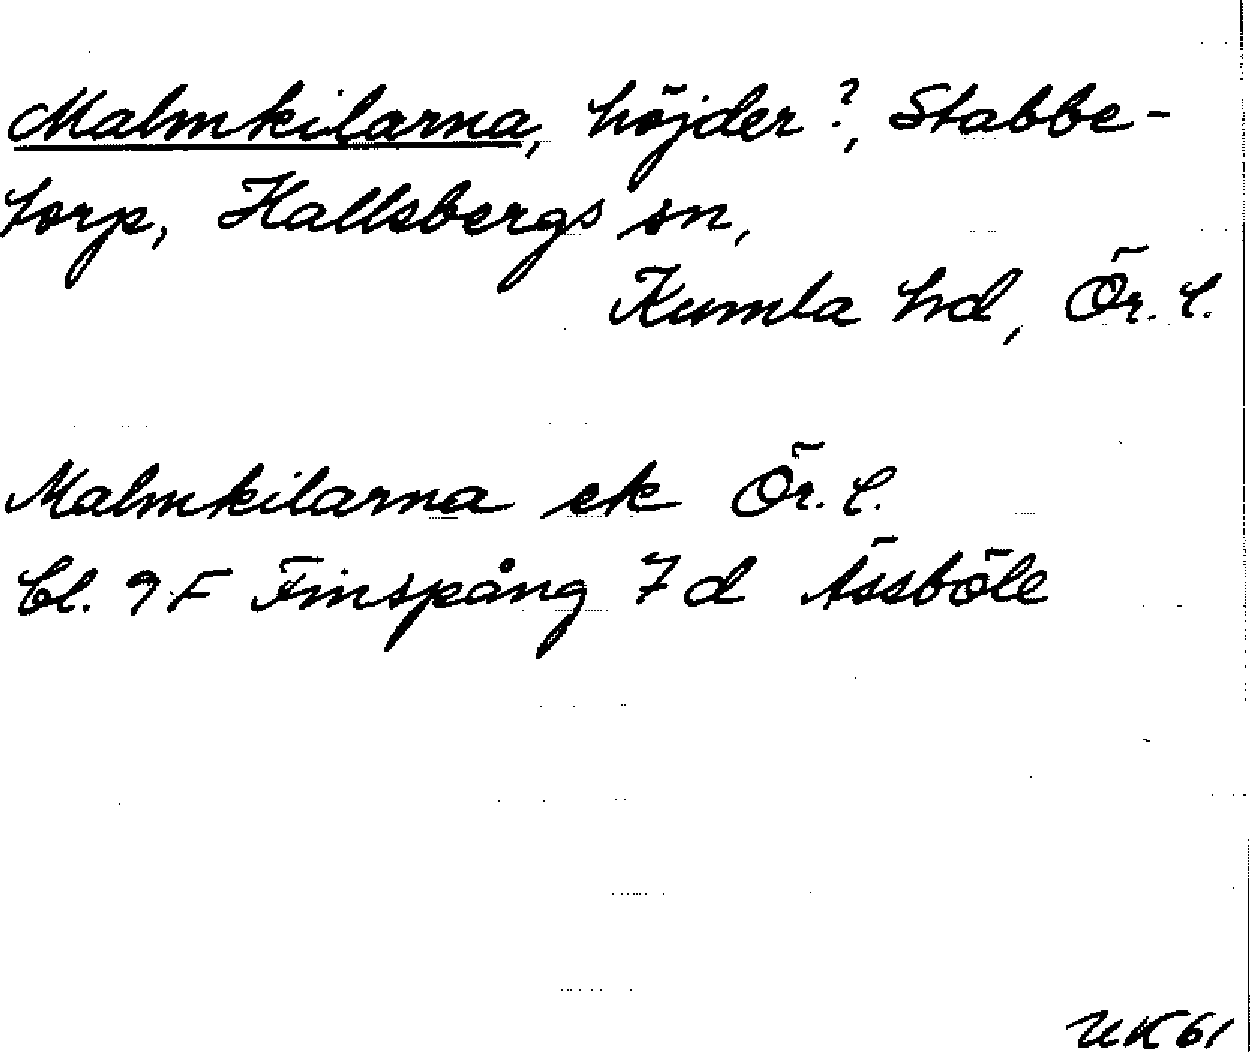 Malmkilarna, höjder?, Stabbe-
torp, Hallsbergs sn,
Kumla hd, Ör. l.
Malmkilarna ek Ör. l.
bl. 9F Finspång 7d Ässböle
UK61